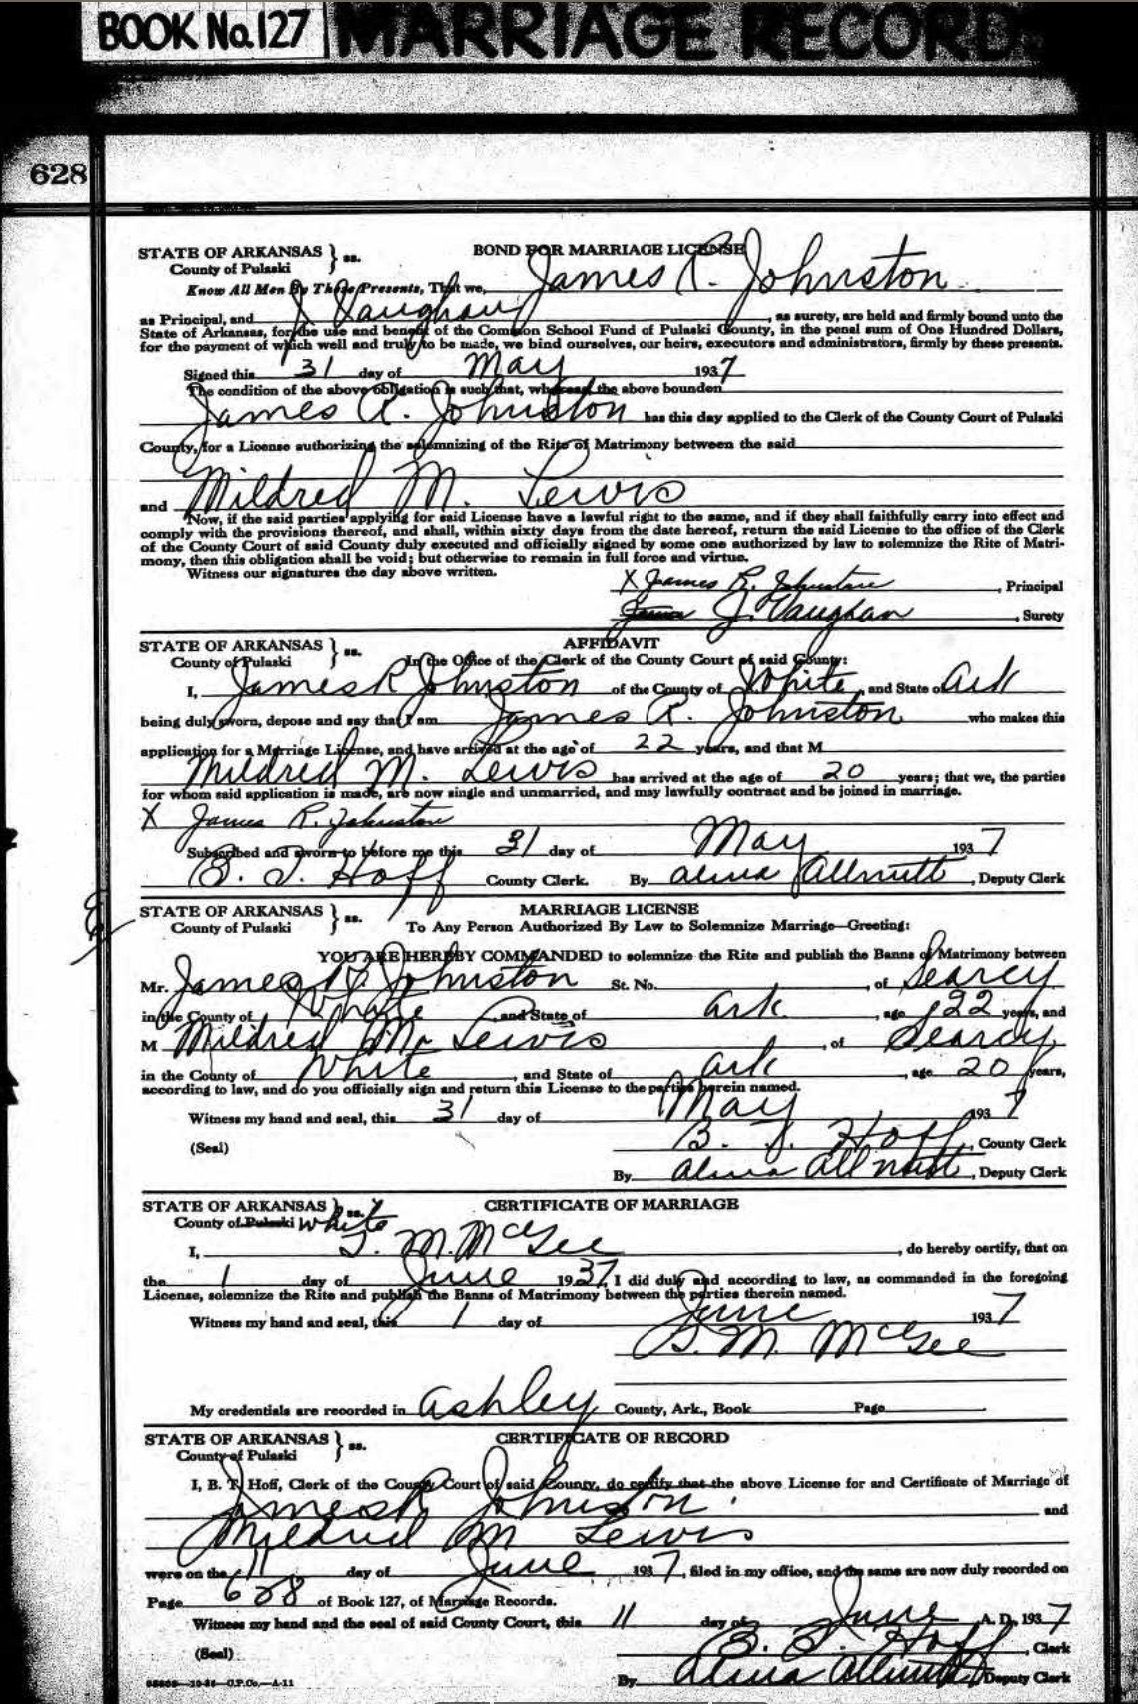 BOOK No. 127 MARRIAGE RECORD
628
STATE OF ARKANSAS } ss. BOND FOR MARRIAGE LICENSE
County of Pulaski
Know All Men By These Presents, That we, James R. Johnston
as Principal, and J Vaughan, as surety, are held and firmly bound unto the
State of Arkansas, for the use and benefit of the Common School Fund of Pulaski County, in the penal sum of One Hundred Dollars,
for the payment of which well and truly to be made, we bind ourselves, our heirs, executors and administrators, firmly by these presents.
Signed this 31 day of May 1937
The condition of the above obligation is such that, whereas, the above bounden
James R. Johnston has this day applied to the Clerk of the County Court of Pulaski
County, for a License authorizing the solemnizing of the Rite of Matrimony between the said
and Mildred M. Lewis
Now, if the said parties applying for said License have a lawful right to the same, and if they shall faithfully carry into effect and
comply with the provisions thereof, and shall, within sixty days from the date hereof, return the said License to the office of the Clerk
of the County Court of said County duly executed and officially signed by some one authorized by law to solemnize the Rite of Matri-
mony, then this obligation shall be void; but otherwise to remain in full force and virtue.
Witness our signatures the day above written.
X James R. Johnston, Principal
J. Vaughan, Surety
STATE OF ARKANSAS } ss. AFFIDAVIT
County of Pulaski In the Office of the Clerk of the County Court of said County:
I, James R Johnston of the County of White, and State of Ark
being duly sworn, depose and say that I am James R. Johnston who makes this
application for a Marriage License, and have arrived at the age of 22 years, and that M
Mildred M. Lewis has arrived at the age of 20 years; that we, the parties
for whom said application is made, are now single and unmarried, and may lawfully contract and be joined in marriage.
X James R. Johnston
Subscribed and sworn to before me this 31 day of May 1937
B. T. Hoff County Clerk. By Alma Allnutt, Deputy Clerk
STATE OF ARKANSAS } ss. MARRIAGE LICENSE
County of Pulaski To Any Person Authorized By Law to Solemnize Marriage—Greeting:
YOU ARE HEREBY COMMANDED to solemnize the Rite and publish the Banns of Matrimony between
Mr. James R Johnston St. No. , of Searcy
in the County of White and State of Ark. , age 22 years, and
M Mildred M. Lewis , of Searcy
in the County of White , and State of Ark , age 20 years,
according to law, and do you officially sign and return this License to the parties herein named.
Witness my hand and seal, this 31 day of May 1937
(Seal) B. T. Hoff, County Clerk
By Alma Allnutt, Deputy Clerk
STATE OF ARKANSAS } ss. CERTIFICATE OF MARRIAGE
County of Pulaski White
I, T. M. McGee, do hereby certify, that on
the 1 day of June 1937, I did duly and according to law, as commanded in the foregoing
License, solemnize the Rite and publish the Banns of Matrimony between the parties therein named.
Witness my hand and seal, this 1 day of June 1937
M. McGee
My credentials are recorded in Ashley County, Ark., Book Page
STATE OF ARKANSAS } ss. CERTIFICATE OF RECORD
County of Pulaski
I, B. T. Hoff, Clerk of the County Court of said County, do certify that the above License for and Certificate of Marriage of
James R Johnston. and
Mildred M Lewis
were on the 11 day of June 1937, filed in my office, and the same are now duly recorded on
Page 628 of Book 127, of Marriage Records.
Witness my hand and the seal of said County Court, this 11 day of June A. D. 1937
(Seal) B. T. Hoff, Clerk
By Alma Allnutt Deputy Clerk